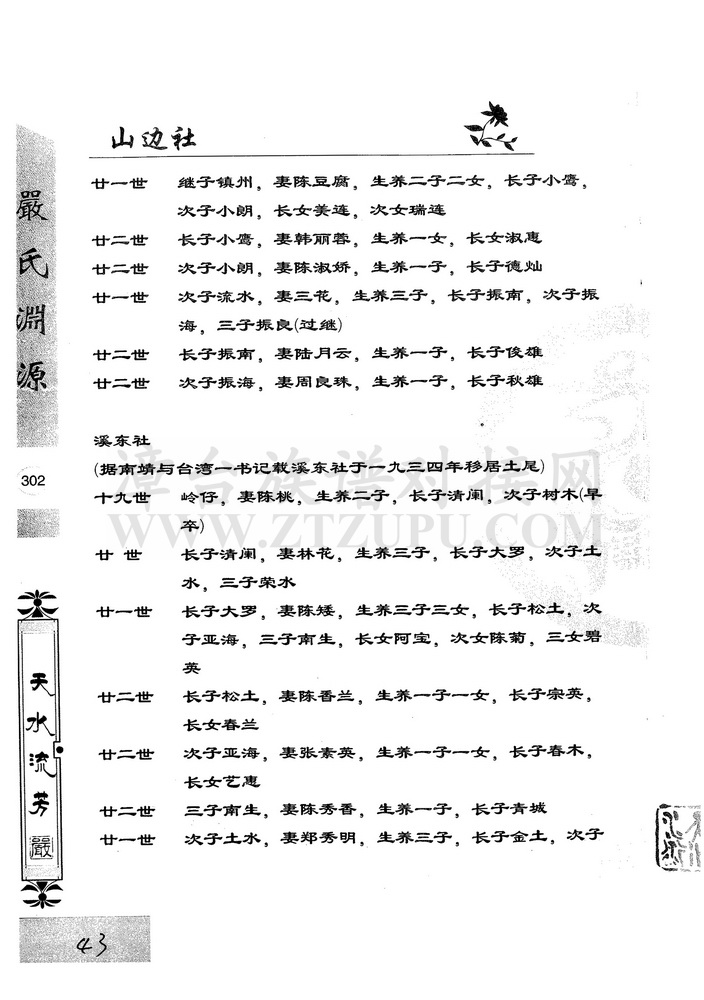 山边社
廿一世 继子镇州，妻陈豆腐，生养二子二女，长子小鹰，
次子小朗，长女美连，次女瑞连
廿二世 长子小鹰，妻韩丽蓉，生养一女，长女淑惠
廿二世 次子小朗，妻陈淑娇，生养一子，长子德灿
廿一世 次子流水，妻三花，生养三子，长子振南，次子振
海，三子振良(过继)
廿二世 长子振南，妻陆月云，生养一子，长子俊雄
廿二世 次子振海，妻周良珠，生养一子，长子秋雄
溪东社
(据南靖与台湾一书记载溪东社于一九三四年移居土尾)
十九世 岭仔，妻陈桃，生养二子，长子清阑，次子树木(早
卒)
廿 世 长子清阑，妻林花，生养三子，长子大罗，次子土
水，三子荣水
廿一世 长子大罗，妻陈矮，生养三子三女，长子松土，次
子亚海，三子南生，长女阿宝，次女陈菊，三女碧
英
廿二世 长子松土，妻陈香兰，生养一子一女，长子宗英，
长女春兰
廿二世 次子亚海，妻张素英，生养一子一女，长子春木，
长女艺惠
廿二世 三子南生，妻陈秀香，生养一子，长子青城
廿一世 次子土水，妻郑秀明，生养三子，长子金土，次子
嚴氏淵源
302
天水流芳
嚴
43
漳台族谱对接网
WWW.ZTZUPU.COM